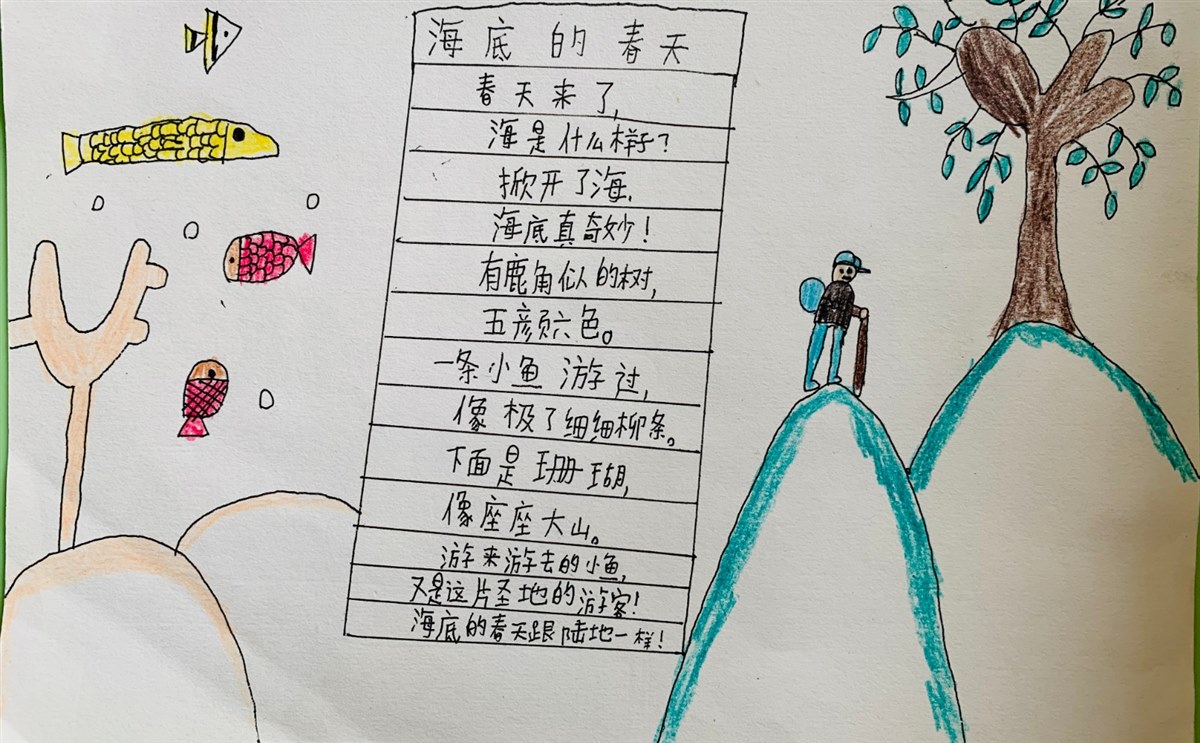 海底的春天
春天来了，
海是什么样子？
掀开了海，
海底真奇妙！
有鹿角似的树，
五颜六色。
一条小鱼游过，
像极了细细柳条。
下面是珊瑚，
像座座大山。
游来游去的小鱼，
又是这片圣地的游客！
海底的春天跟陆地一样！